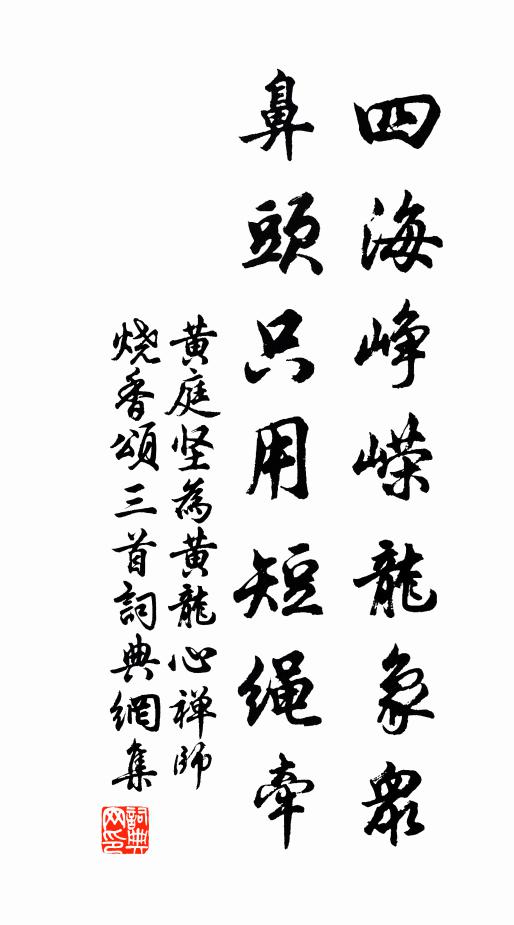 四海峥嵘龍象眾
鼻頭只用短绳牽
黄庭坚為黄龍心禅師
烧香頌三首詞典網集
詞典网印